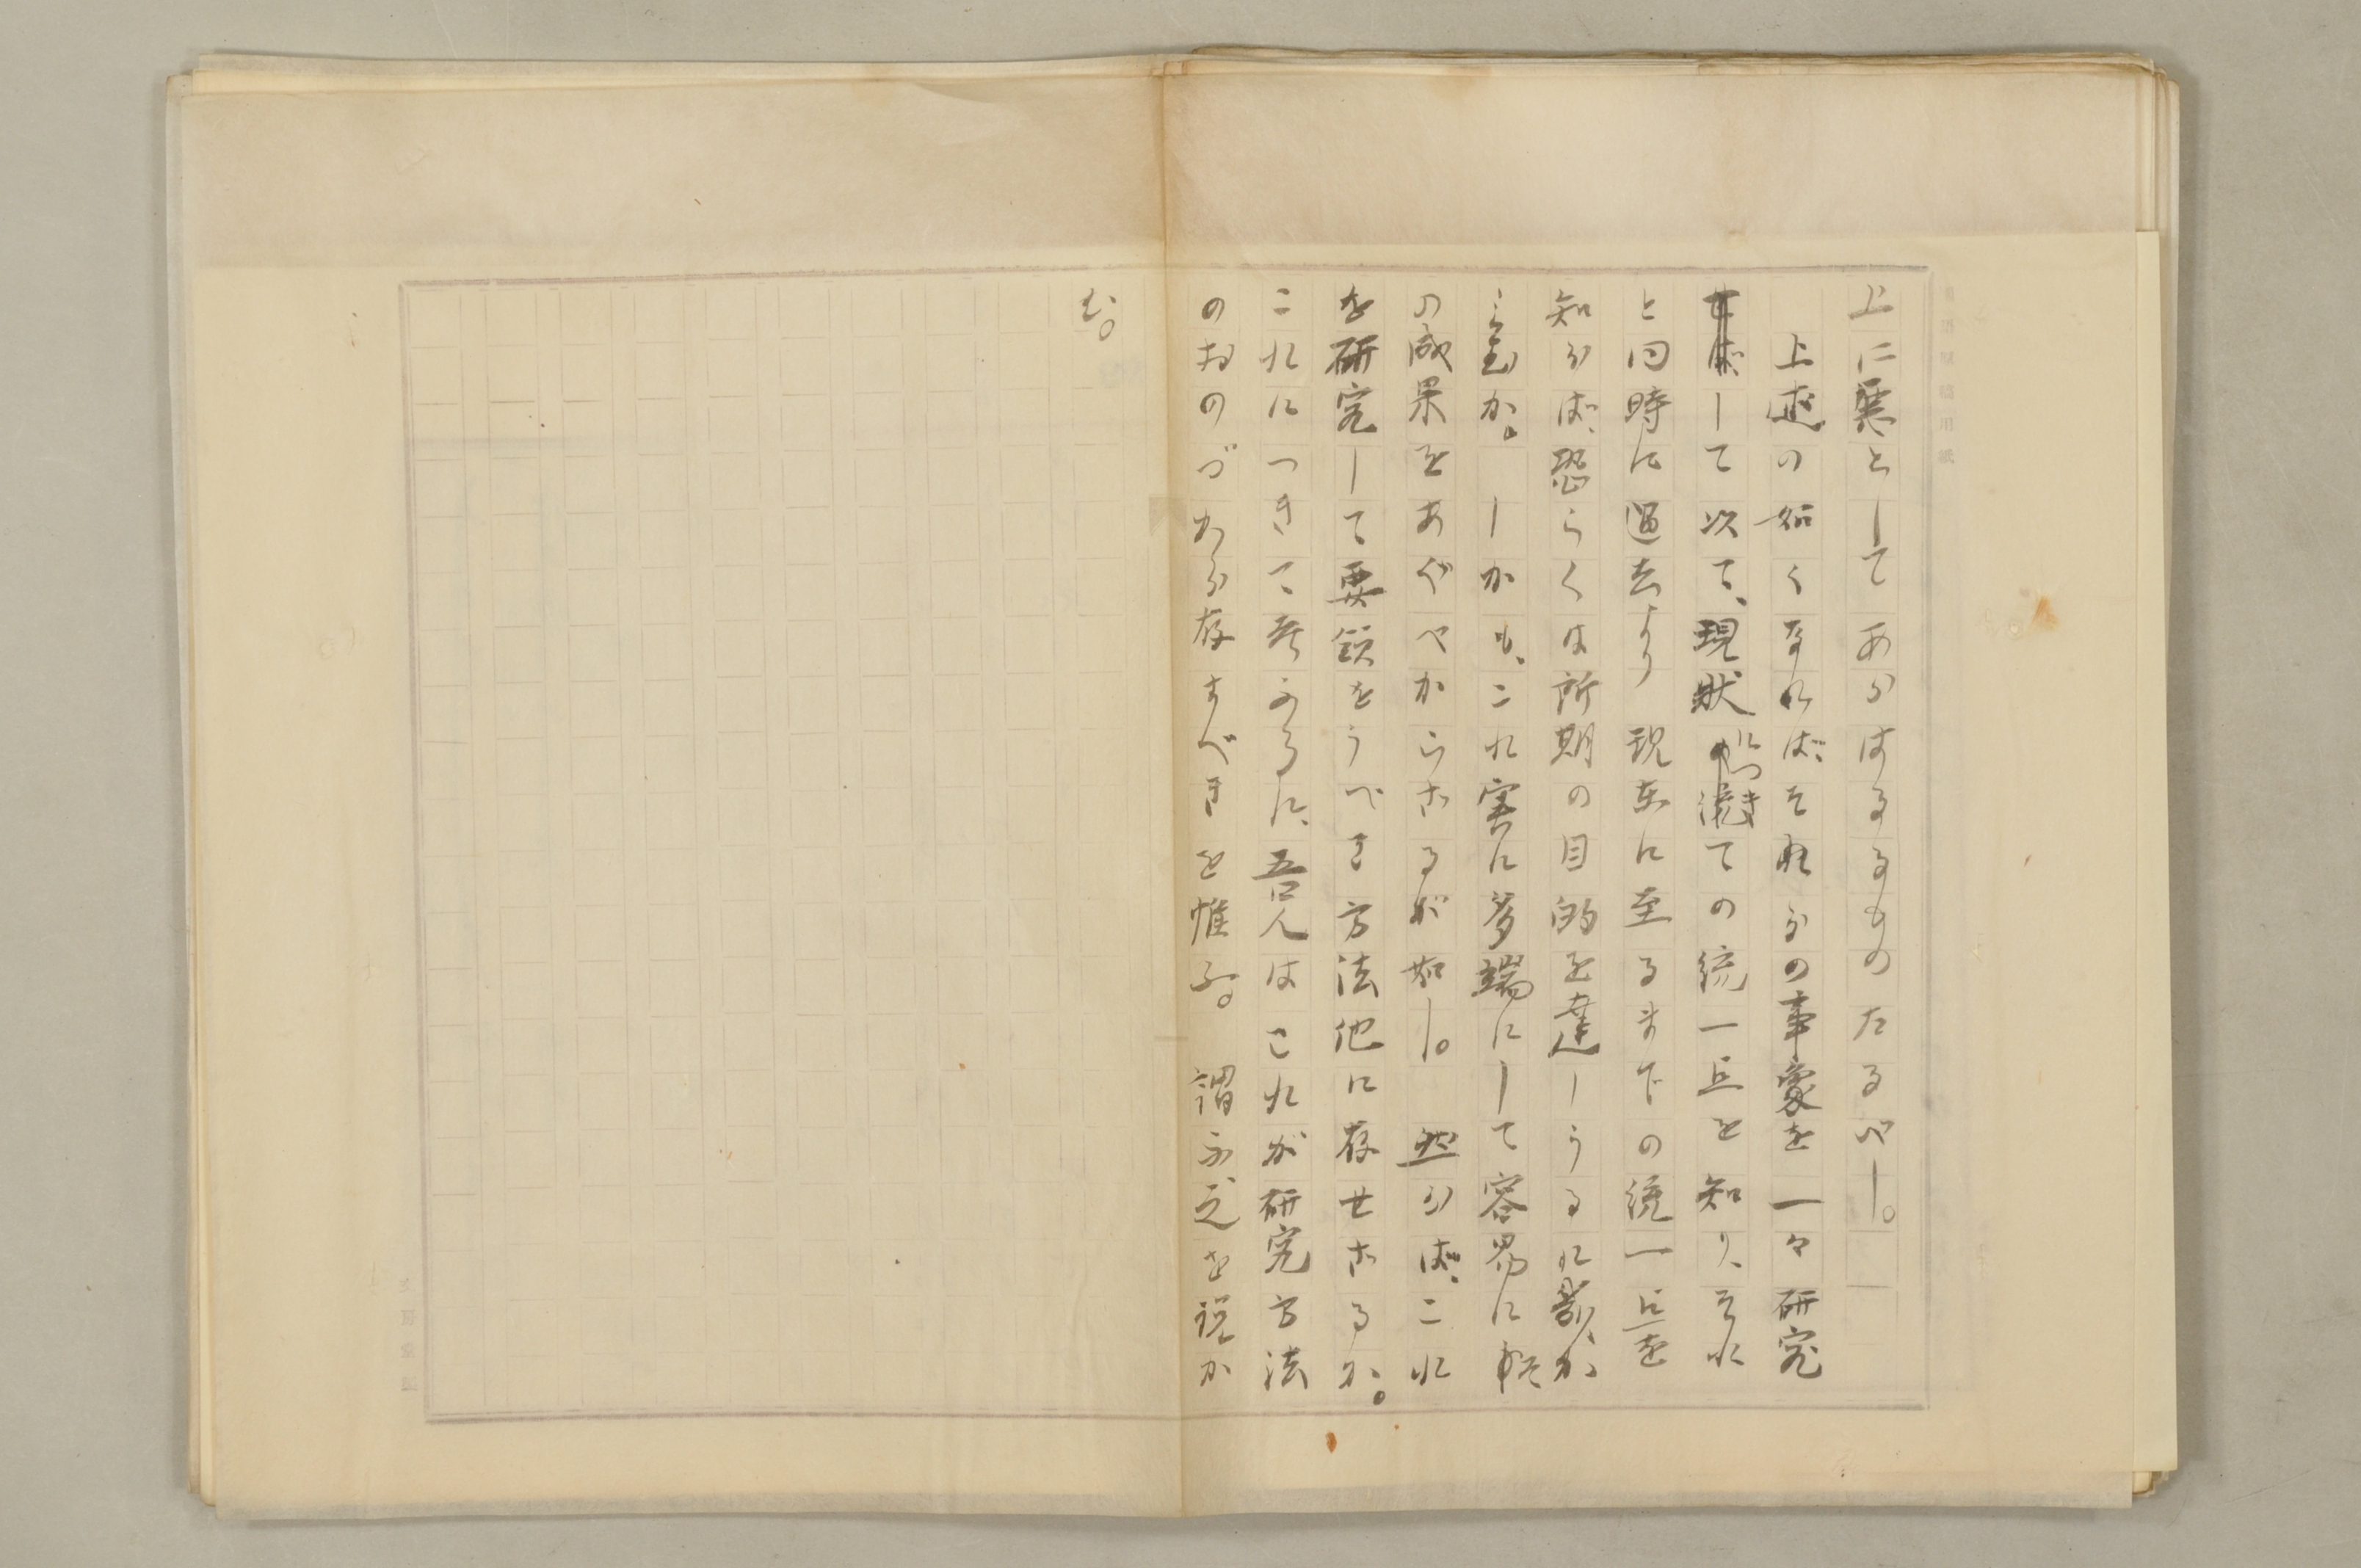 上に異としてあらはるるものたるべし。
上述の如くなればそれらの事象を一々研究
して次て、現状につきての統一点を知り、それ
と同時に過去より現在に至るまでの統一点を
知らば、恐らくは所期の目的を達しうるに庶か
らむか。しかも、これ実に多端にして容易に
の成果をあぐべからざるが如し。然らば、これ
を研究して要領をうべき方法他に存せざるか。
これにつきて考ふるに、吾人はこれが研究方法
のおのづから存すべきを惟ふ。謂ふ之を説か
む。